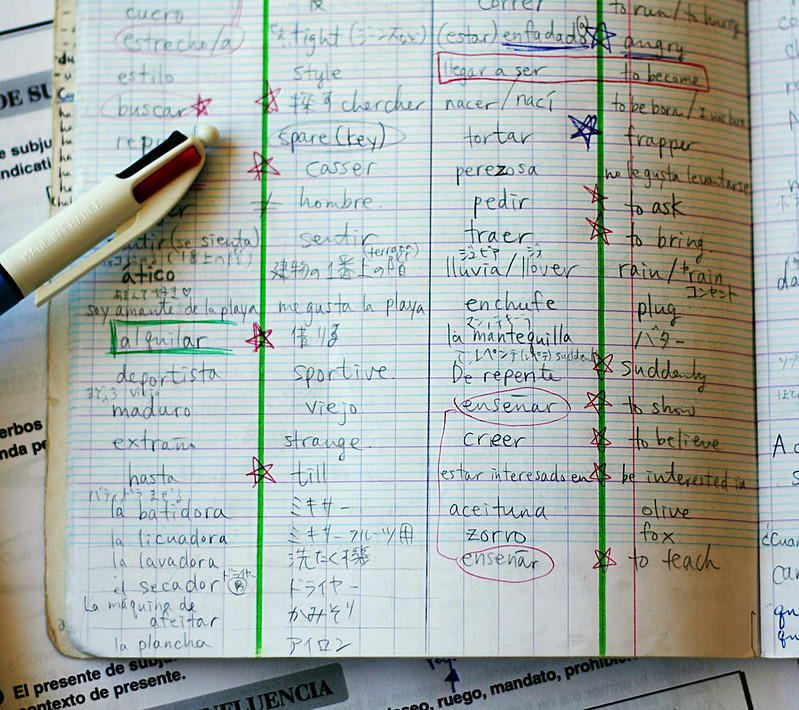 cuero
correr to run / to hurry
estrecho/a tight (estar) enfadado angry
estilo style llegar a ser to become
buscar 探す chercher nacer / nací to be born / I was born
spare (key) tortar frapper
casser perezosa no le gusta levantarse
≠ hombre. pedir to ask
(se sienta) sentir traer to bring
ático 建物の1番上の階 (terraza) lluvia / llover rain / to rain
soy amante de la playa me gusta la playa enchufe plug コンセント
alquilar 借りる la mantequilla バター
deportista sportive. De repente suddenly
maduro viejo enseñar to show
extraño strange. creer to believe
hasta till estar interesado en be interested in
la batidora ミキサー aceituna olive
la licuadora ミキサーフルーツ用 zorro fox
la lavadora 洗たく機 enseñar to teach
el secador ドライヤー ドライヤー
La máquina de
afeitar かみそり
la plancha アイロン
MADE IN FRANCE
DE SU
e subju
ndicati
erbos
nda pe
El presente de subju
contexto de presente.
NFLUENCIA
seo, ruego, mandato, prohibi